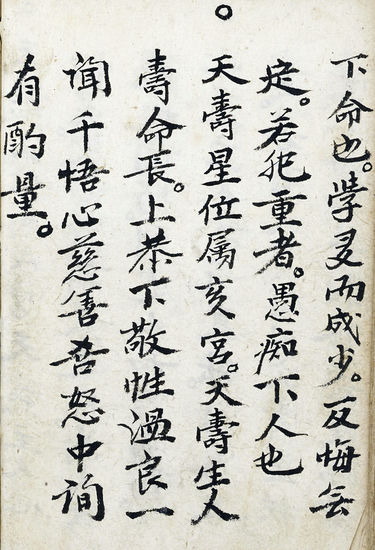 下命也。学多而成少。反悔無
定。若犯重者。愚痴下人也
天壽星位属亥宮。天壽生人
壽命長。上恭下敬性温良一
闻千悟心慈善吞怒中询
有酌量。